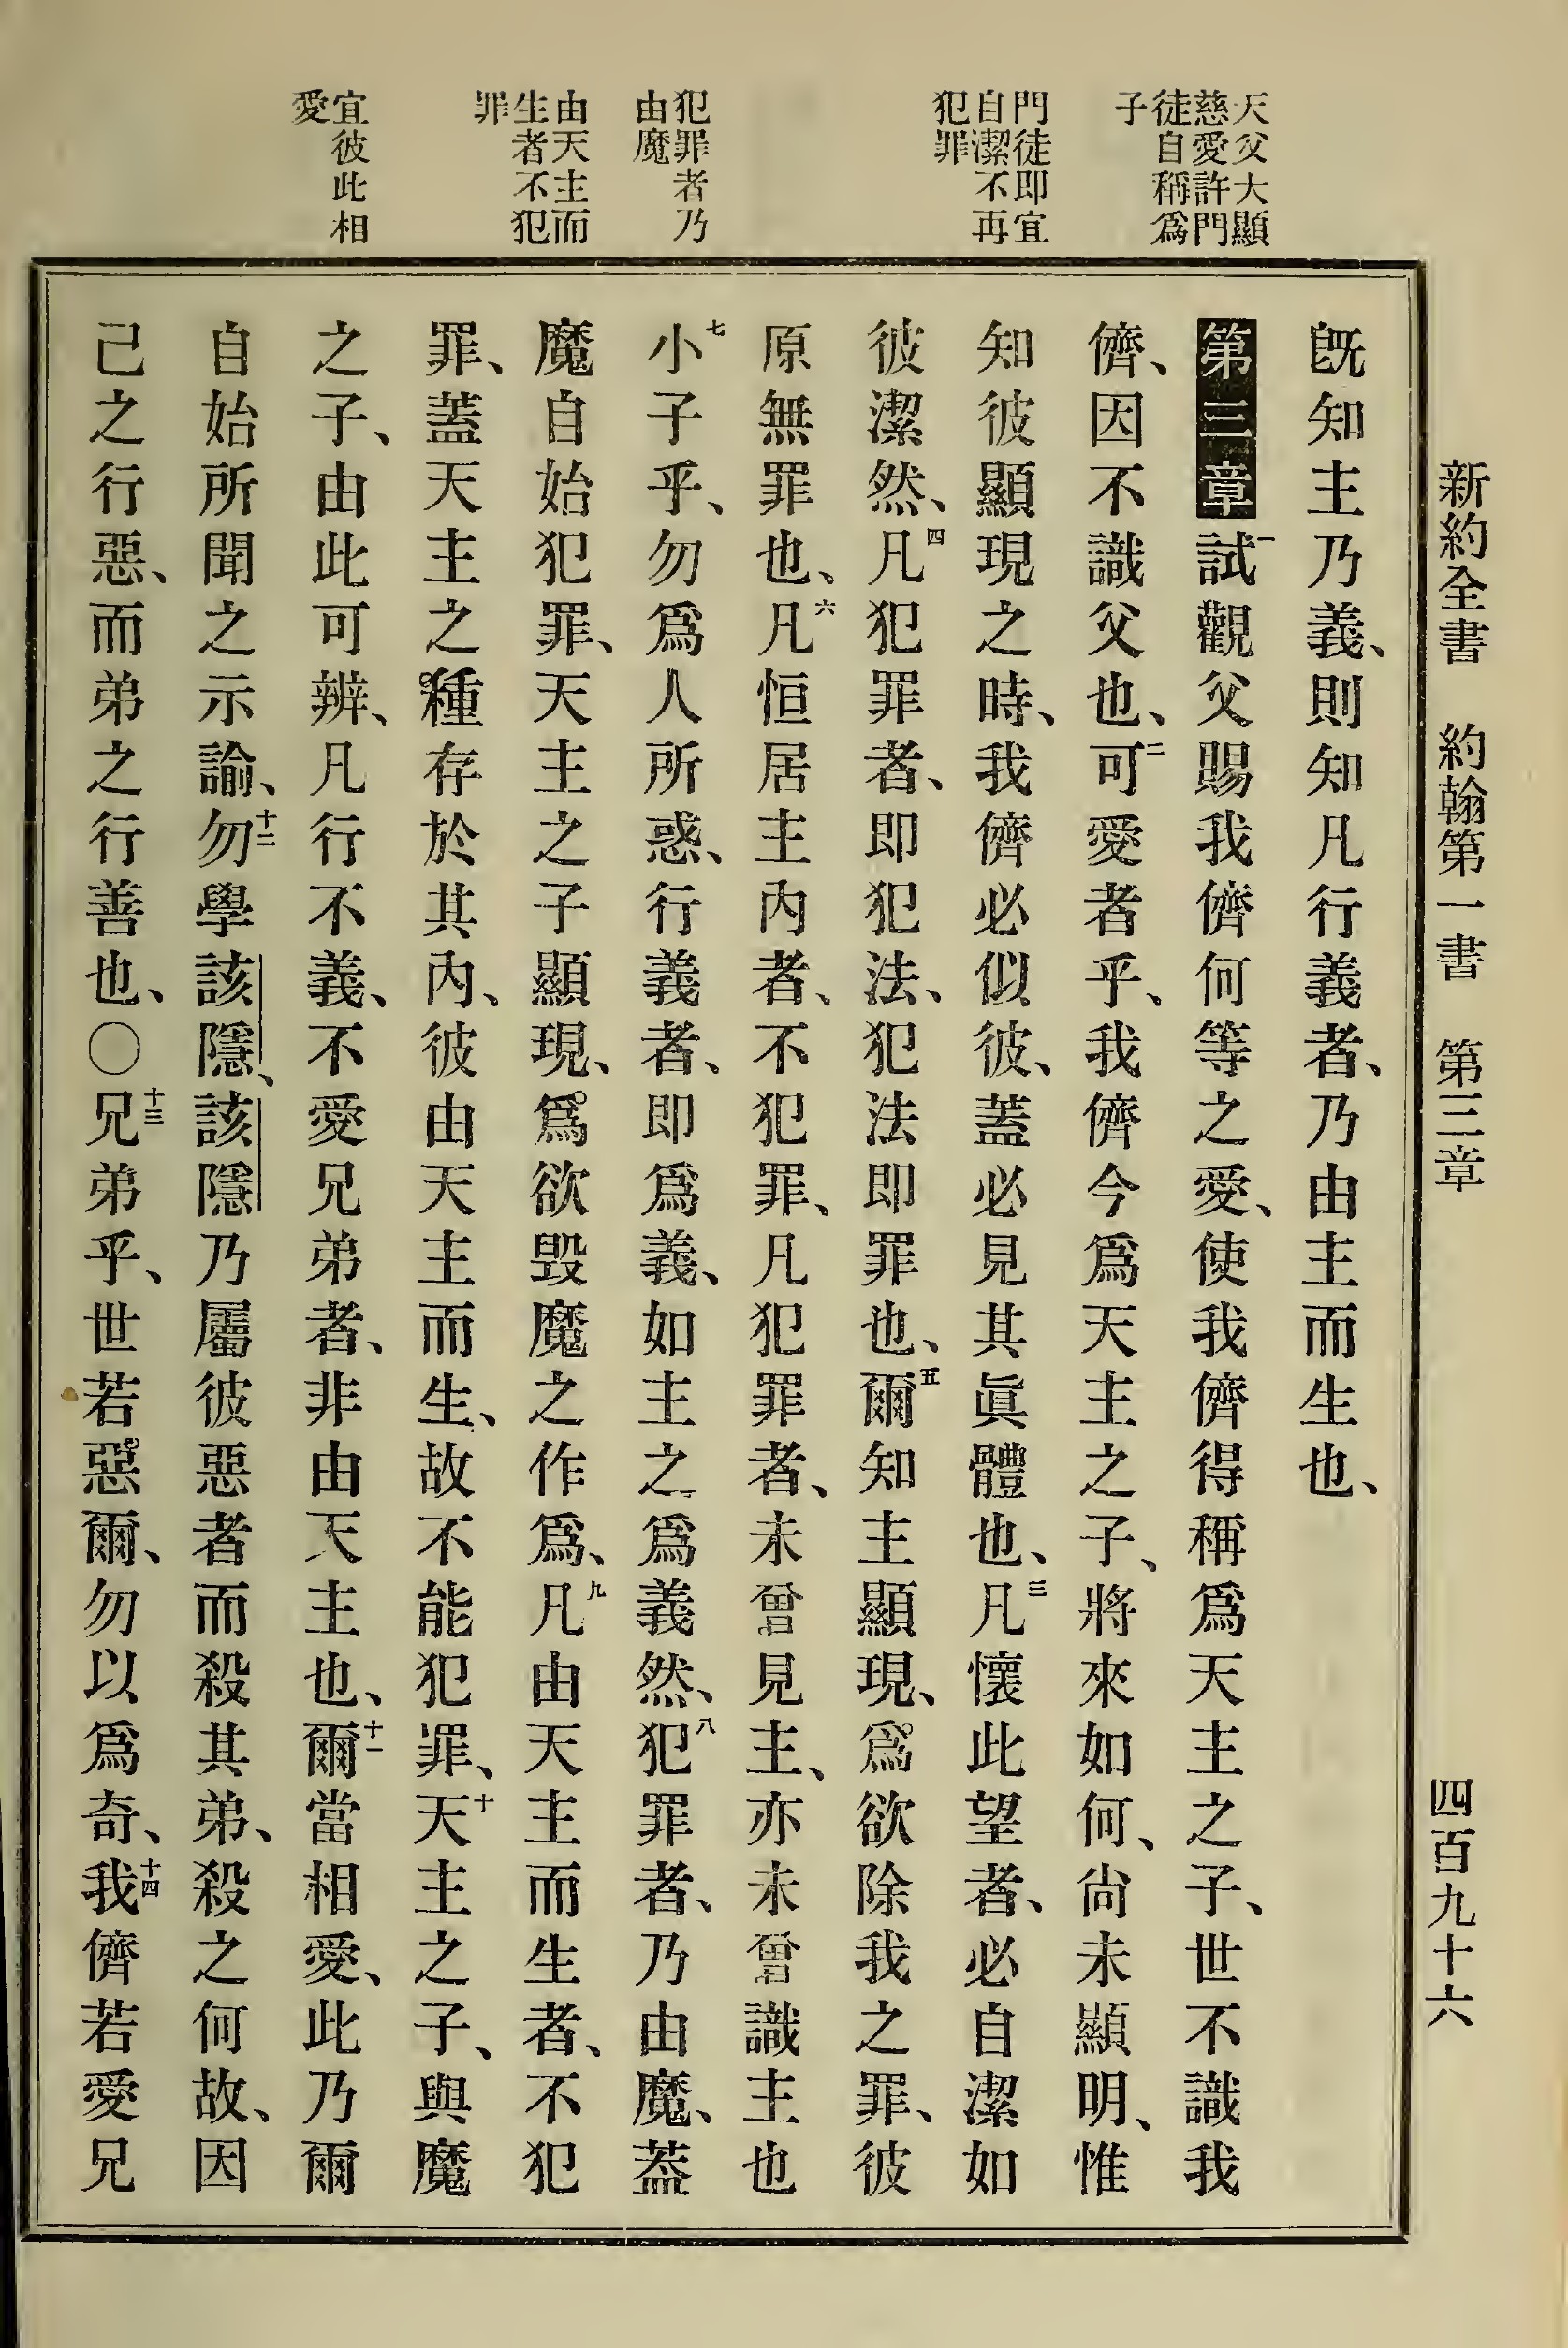 新約全書 約翰第一書 第三章 四百九十六
天父大顯
慈愛許門
徒自稱爲
子
門徒即宜
自潔不再
犯罪
犯罪者乃
由魔
由天主而
生者不犯
罪
宜彼此相
愛
既知主乃義、則知凡行義者、乃由主而生也、
第三章一試觀父賜我儕何等之愛、使我儕得稱爲天主之子、世不識我
儕、因不識父也、二可愛者乎、我儕今爲天主之子、將來如何、尙未顯明、惟
知彼顯現之時、我儕必似彼、蓋必見其眞體也、三凡懷此望者、必自潔如
彼潔然、四凡犯罪者、即犯法、犯法即罪也、五爾知主顯現、爲欲除我之罪、彼
原無罪也、六凡恒居主內者、不犯罪、凡犯罪者、未曾見主、亦未曾識主也
七小子乎、勿爲人所惑、行義者、即爲義、如主之爲義然、八犯罪者、乃由魔、蓋
魔自始犯罪、天主之子顯現、爲欲毀魔之作爲、九凡由天主而生者、不犯
罪、蓋天主之種存於其內、彼由天主而生、故不能犯罪、十天主之子、與魔
之子、由此可辨、凡行不義、不愛兄弟者、非由天主也、十一爾當相愛、此乃爾
自始所聞之示諭、十二勿學該隱、該隱乃屬彼惡者而殺其弟、殺之何故、因
己之行惡、而弟之行善也、〇十三兄弟乎、世若惡爾、勿以爲奇、十四我儕若愛兄